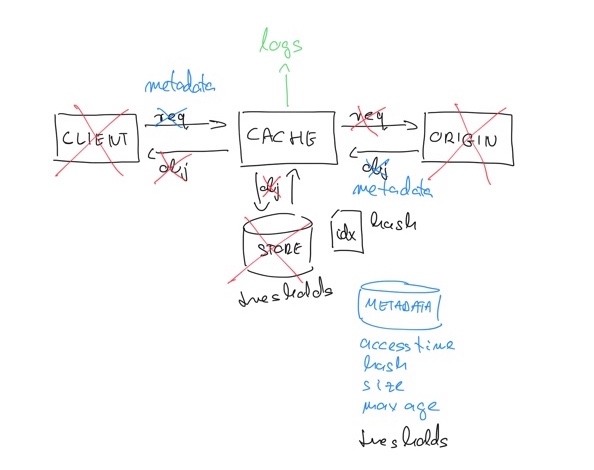 logs
metadata
req
req
CLIENT
CACHE
ORIGIN
obj
obj
metadata
obj
STORE
idx
hash
tresholds
METADATA
access time
hash
size
max age
tresholds